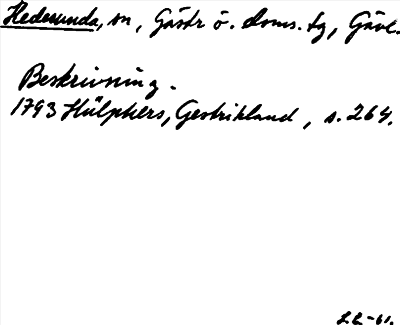 Hedesunda, sn, Gästr ö. doms. tg, Gävl.
Beskrivning.
1793 Hülphers, Gestrikland, s. 264.
LL-61.